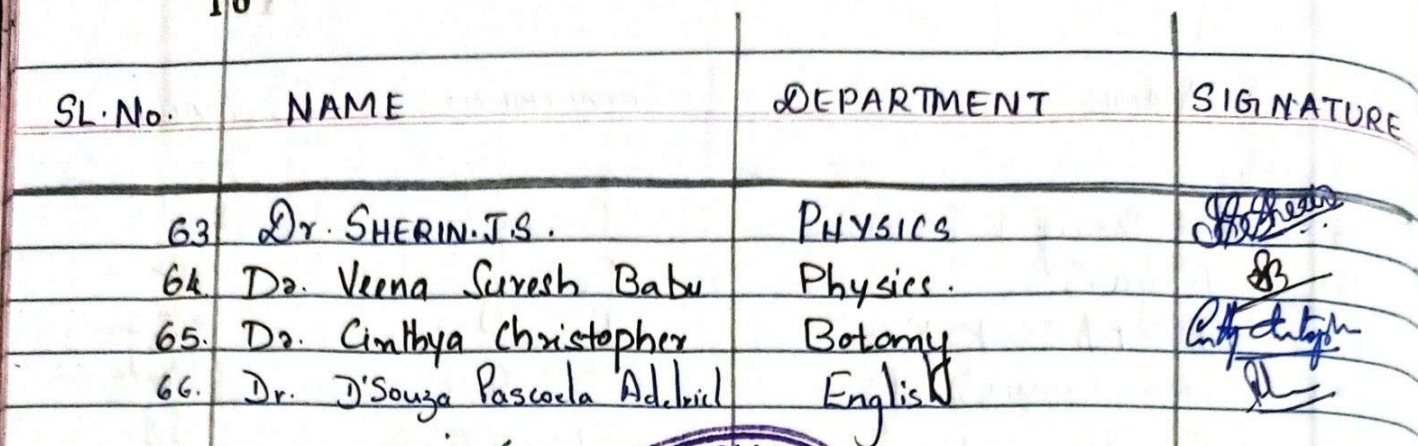 SL.No. NAME DEPARTMENT SIGNATURE
63 Dr. SHERIN.J.S. PHYSICS
64. Dr. Veena Suresh Babu Physics.
65. Dr. Cinthya Christopher Botany
66. Dr. D'Souza English